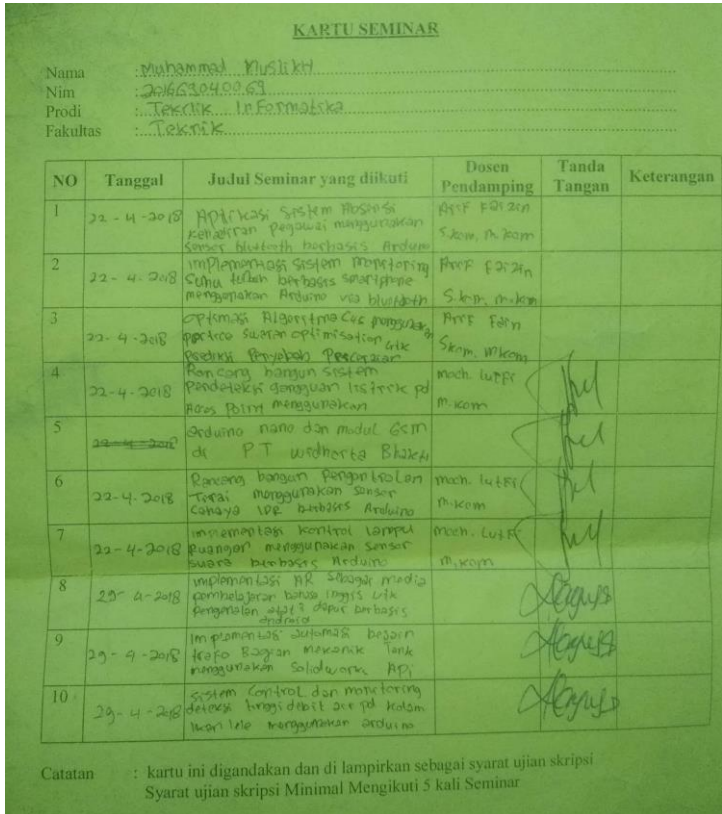 KARTU SEMINAR
Nama : Muhammad Muslikh
Nim : 201669040069
Prodi : Teknik Informatika
Fakultas : Teknik
NO Tanggal Judul Seminar yang diikuti Dosen Pendamping Tanda Tangan Keterangan
1 22 - 4 - 2018 Aplikasi Sistem Absensi Arif Faizin
kehadiran pegawai menggunakan S.kom, M.kom
sensor bluetooth berbasis Arduino
2 22 - 4 - 2018 implementasi sistem monitoring Arif Faizin
Suhu tubuh berbasis smartphone
menggunakan Arduino via bluetooth S.kom, M.kom
3 22 - 4 - 2018 optimasi Algoritma C4.5 menggunakan Arif
swarm optimisation utk S.kom, M.kom
Prediksi Penyebab Perceraian
4 22 - 4 - 2018 Rancang bangun sistem moch. lutfi
Pendeteksi gangguan listrik pd
menggunakan M.kom
5 22-4-2018 arduino nano dan modul GSM
di PT widharta Bhakti
6 22-4-2018 Rancang bangun Pengontrolan moch. lutfi
menggunakan sensor
Cahaya LDR berbasis Arduino M.kom
7 22-4-2018 implementasi kontrol lampu moch. Lutfi
Ruangan menggunakan sensor
suara berbasis Arduino M.kom
8 29- 4-2018 implementasi AR sebagai media
pembelajaran bahasa inggris utk
pengenalan alat² dapur berbasis
android
9 29 - 4 - 2018 implementasi automasi desain
trafo Bagian mekanik Tank
menggunakan Solidwork API
10 29- 4 -2018 sistem control dan monitoring
deteksi tinggi debit air pd kolam
ikan lele menggunakan arduino
Catatan : kartu ini digandakan dan di lampirkan sebagai syarat ujian skripsi
Syarat ujian skripsi Minimal Mengikuti 5 kali Seminar